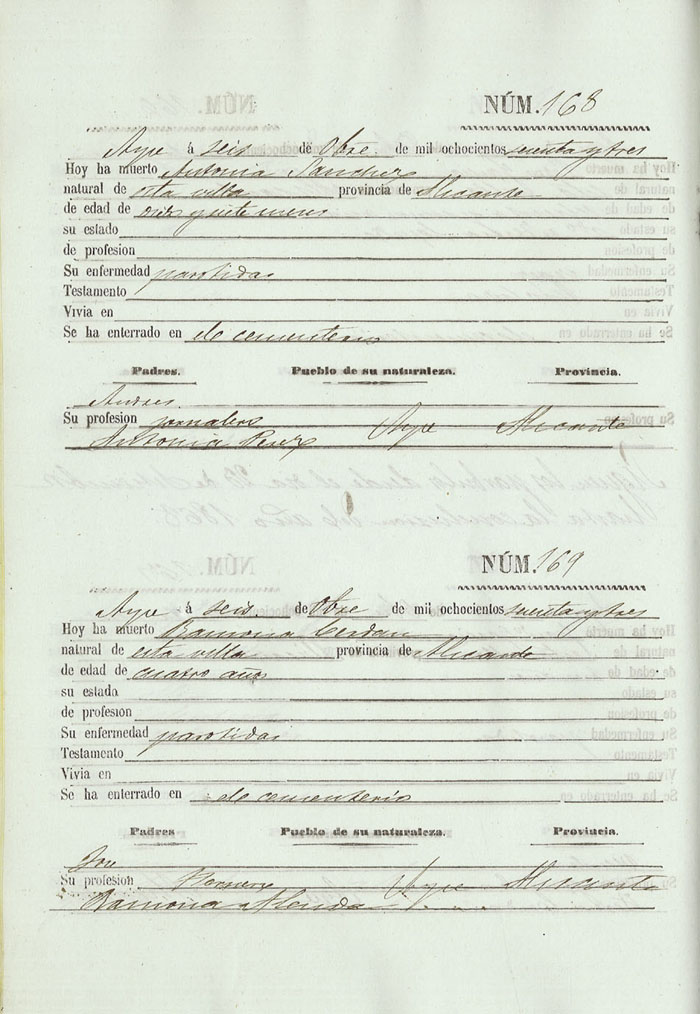 NÚM. 168
Aspe á seis de Obre. de mil ochocientos sesenta y tres
Hoy ha muerto Antonia Sanchez
natural de esta villa provincia de Alicante
de edad de meses
su estado
de profesion
Su enfermedad parotidas
Testamento
Vivia en
Se ha enterrado en el cementerio
Padres. Pueblo de su naturaleza. Provincia.
Andres
Su profesion jornalero Aspe Alicante
Antonia Perez
NÚM. 169
Aspe á seis de Obre de mil ochocientos sesenta y tres
Hoy ha muerto Ramona Cerdan
natural de esta villa provincia de Alicante
de edad de cuatro años
su estado
de profesion
Su enfermedad parotidas
Testamento
Vivia en
Se ha enterrado en el cementerio
Padres Pueblo de su naturaleza. Provincia.
Jose
Su profesion Aspe Alicante
Ramona